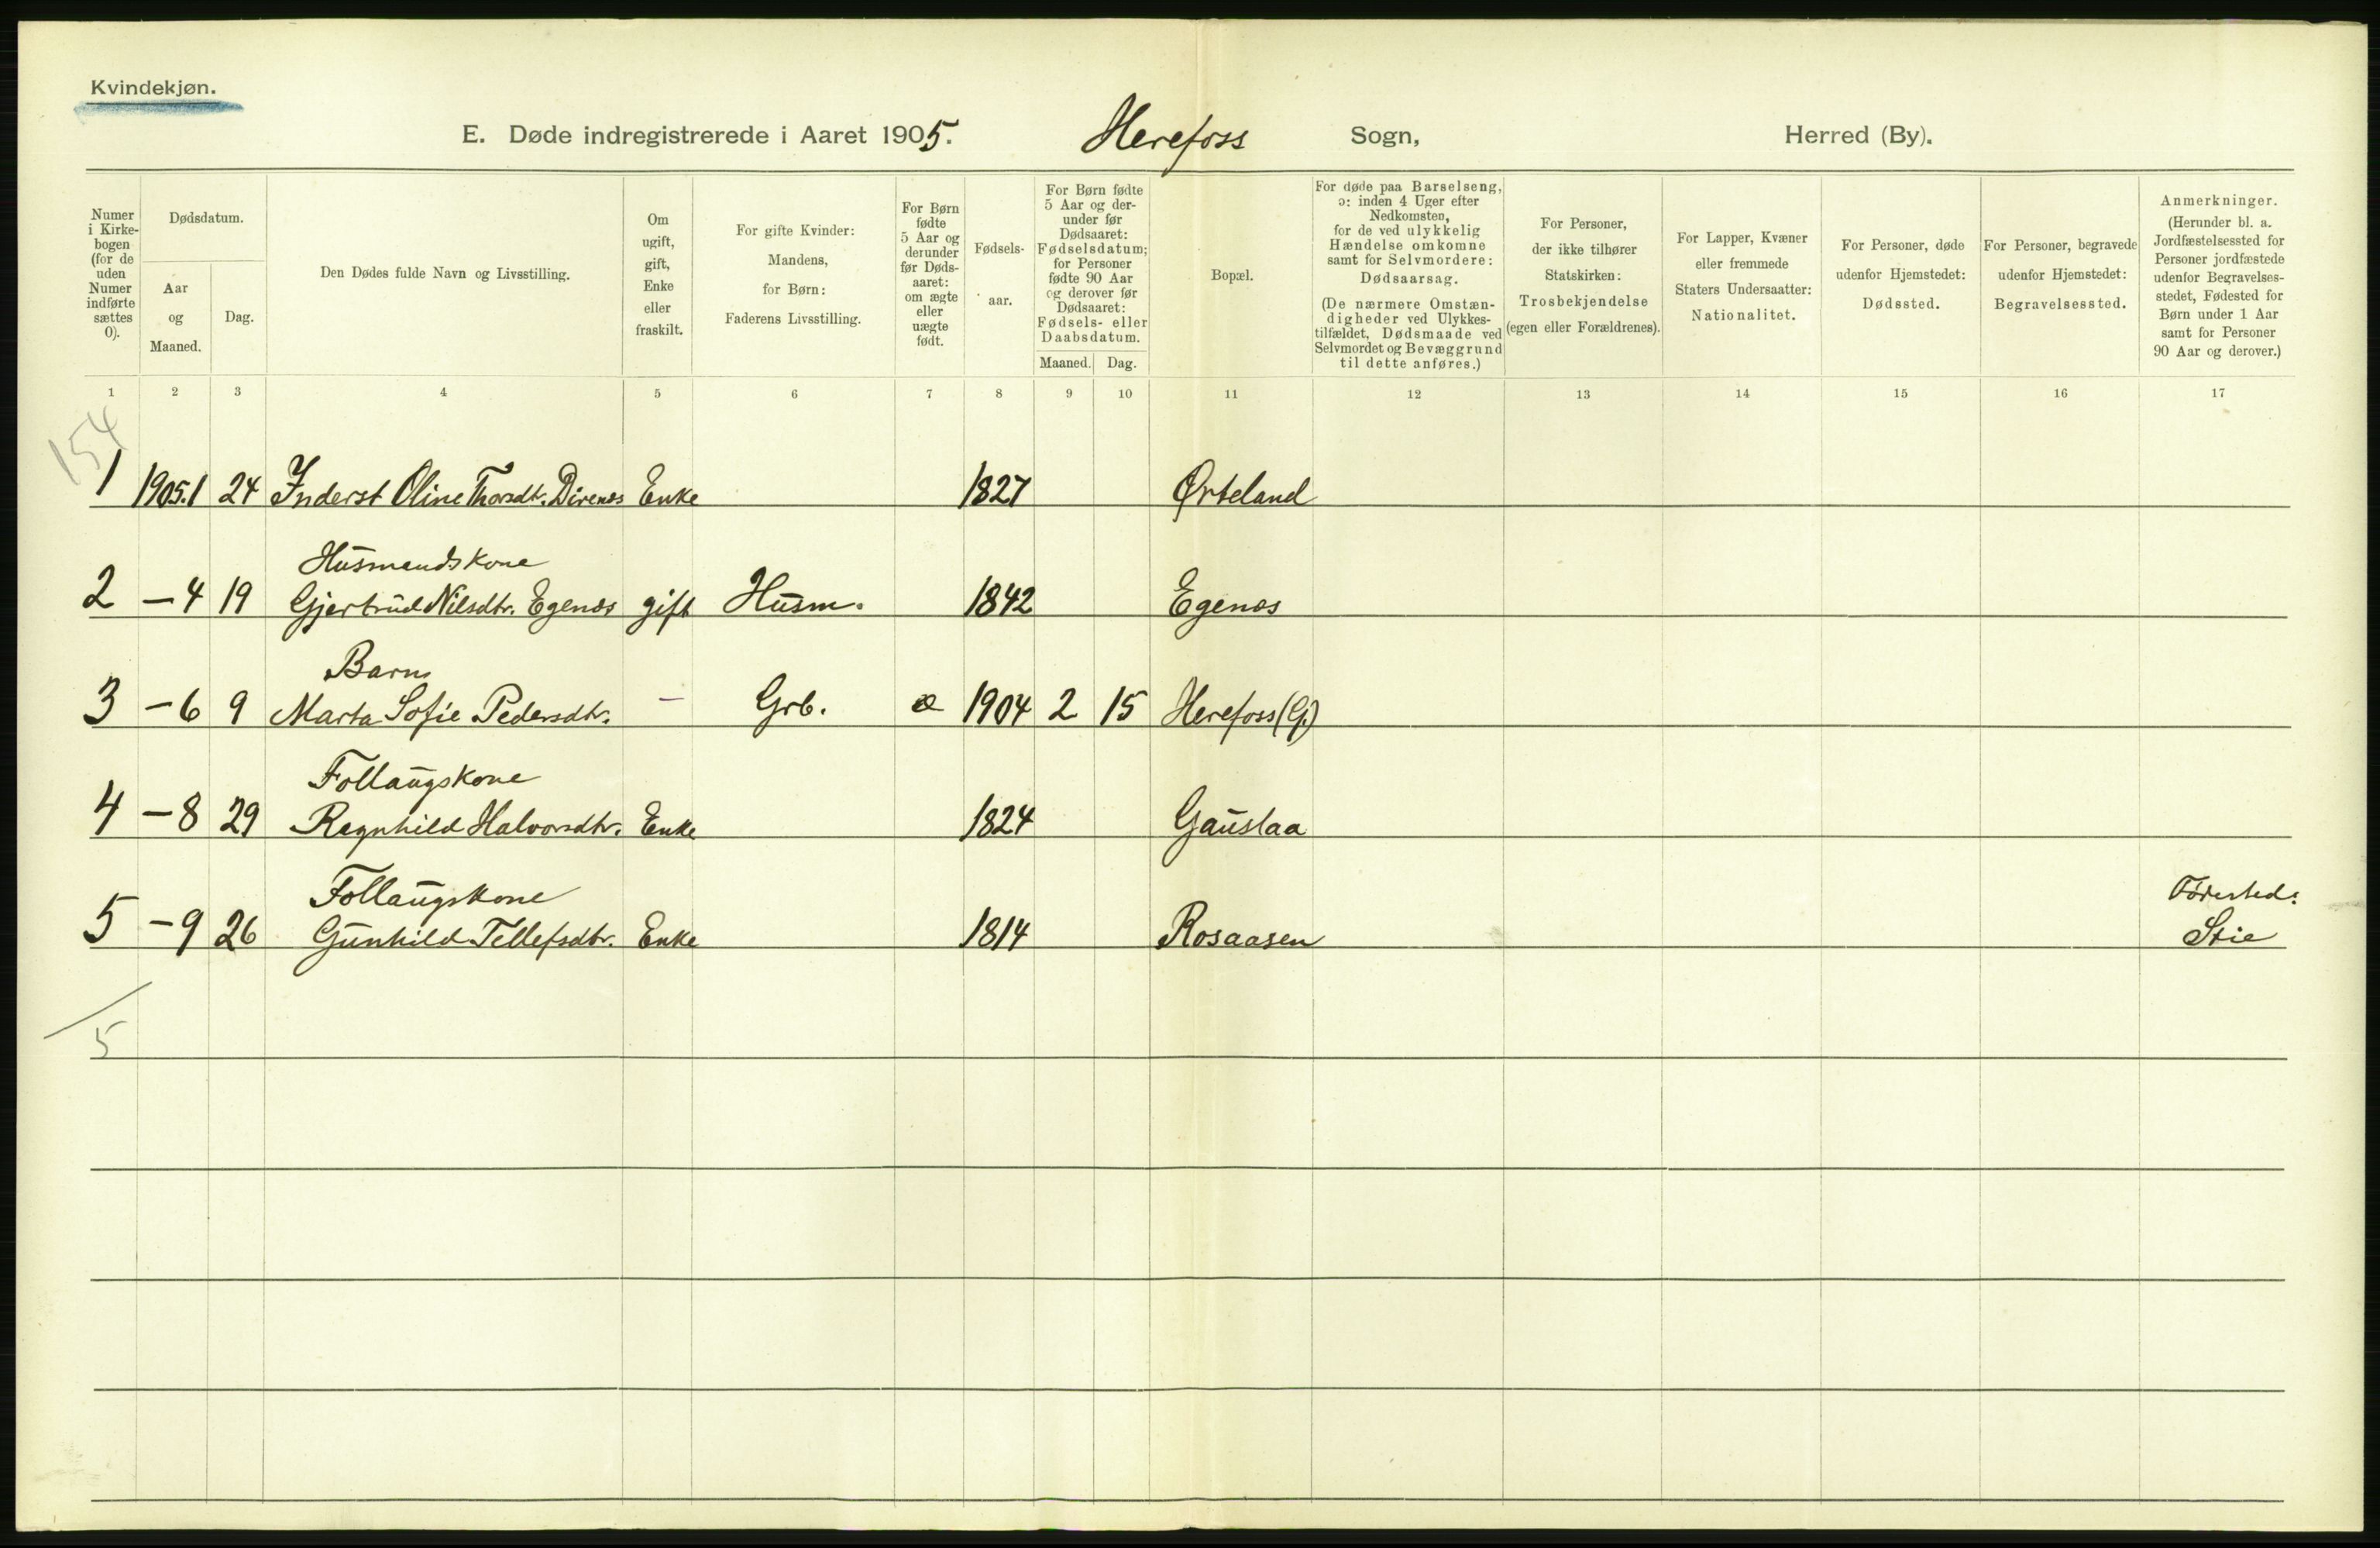 Kvindekjøn.
E. Døde indregistrerede i Aaret 1905. Herefoss Sogn, Herred (By).
Numer i Kirkebogen (for de uden Numer indførte sættes 0).
Dødsdatum.
Aar og Maaned.
Dag.
Den Dødes fulde Navn og Livsstilling.
Om ugift, gift, Enke eller fraskilt.
For gifte Kvinder: Mandens, for Børn: Faderens Livsstilling.
For Børn fødte 5 Aar og derunder før Dødsaaret: om ægte eller uægte født.
Fødsels-aar.
For Børn fødte 5 Aar og derunder før Dødsaaret: Fødselsdatum; for Personer fødte 90 Aar og derover før Dødsaaret: Fødsels- eller Daabsdatum.
Maaned. Dag.
Bopæl.
For døde paa Barselseng, ɔ: inden 4 Uger efter Nedkomsten, for de ved ulykkelig Hændelse omkomne samt for Selvmordere: Dødsaarsag.
(De nærmere Omstændigheder ved Ulykkestilfældet, Dødsmaade ved Selvmordet og Bevæggrund til dette anføres.)
For Personer, der ikke tilhører Statskirken: Trosbekjendelse (egen eller Forældrenes).
For Lapper, Kvæner eller fremmede Staters Undersaatter: Nationalitet.
For Personer, døde udenfor Hjemstedet: Dødssted.
For Personer, begravede udenfor Hjemstedet: Begravelsessted.
Anmerkninger.
(Herunder bl. a. Jordfæstelsessted for Personer jordfæstede udenfor Begravelsesstedet, Fødested for Børn under 1 Aar samt for Personer 90 Aar og derover.)
1 2 3 4 5 6 7 8 9 10 11 12 13 14 15 16 17
154
1 1905.1 24 Inderst Oline Thorsdtr. Direnes Enke 1827 Ørteland
Husmandskone
2 – 4 19 Gjertrud Nilsdtr. Egenæs gift Husm. 1842 Egenæs
Barn
3 – 6 9 Marta Sofie Pedersdtr. – Grb. æ 1904 2 15 Herefoss (G.)
Follaugskone
4 – 8 29 Ragnhild Halvorsdtr. Enke 1824 Gauslaa
Follaugskone Fødested:
5 – 9 26 Gunhild Tellefsdtr. Enke 1814 Rosaasen Stie
5